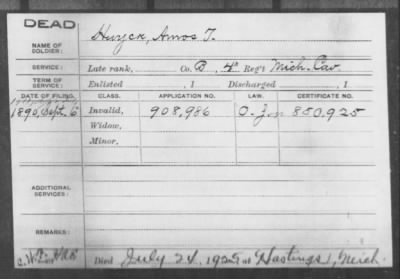 DEAD
NAME OF SOLDIER: Huyck, Amos T.
SERVICE: Late rank, Co. B, 4th Reg't Mich. Cav.
TERM OF SERVICE: Enlisted , 1 Discharged , 1
DATE OF FILING. CLASS. APPLICATION NO. LAW. CERTIFICATE NO.
1890, Sept. 6 Invalid, 908,986 850,925
Widow,
Minor,
ADDITIONAL SERVICES:
REMARKS:
Died July 24, at Hastings, Mich.